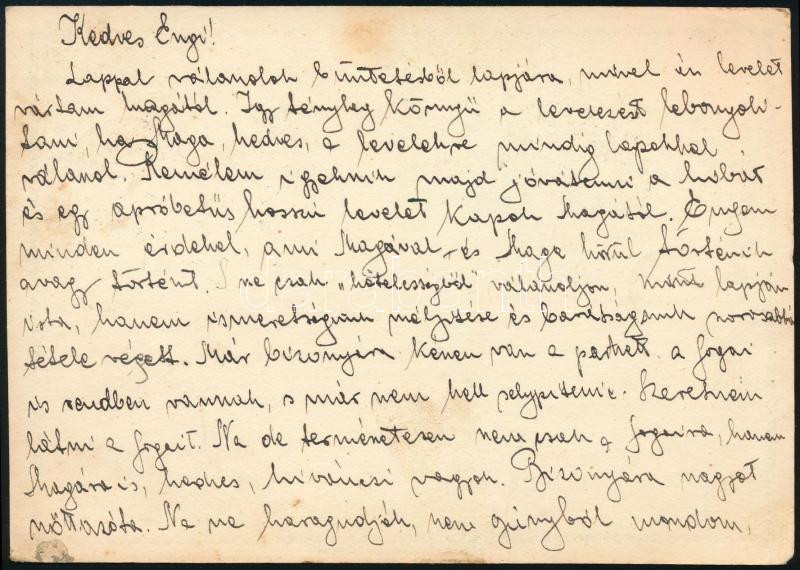 Kedves Engi!
Lappal válaszolok büntetésből lapjára, mivel én levelet
vártam Magától. Így tényleg könnyű a levelezést lebonyolí-
tani, ha Maga, kedves, a levelekre mindig lapokkal
válaszol. Remélem igyekszik majd jóvátenni a hibát
és egy apróbetűs hosszú levelet kapok Magától. Engem
minden érdekel, ami Magával és Maga körül történik
avagy történt. S ne csak „kötelességből" válaszoljon, mint lapján
írta, hanem ismeretségünk mélyítése és barátságunk szorosabbá
tétele végett. Már bizonyára készen van a a fogai
is rendben vannak, s már nem kell selypítenie. Szeretném
látni a fogait. Na de természetesen nemcsak a fogaira, hanem
Magára is, kedves, kíváncsi vagyok. Bizonyára nagyot
nőtt azóta. Na ne haragudjék, nem gúnyból mondom,
darabanth